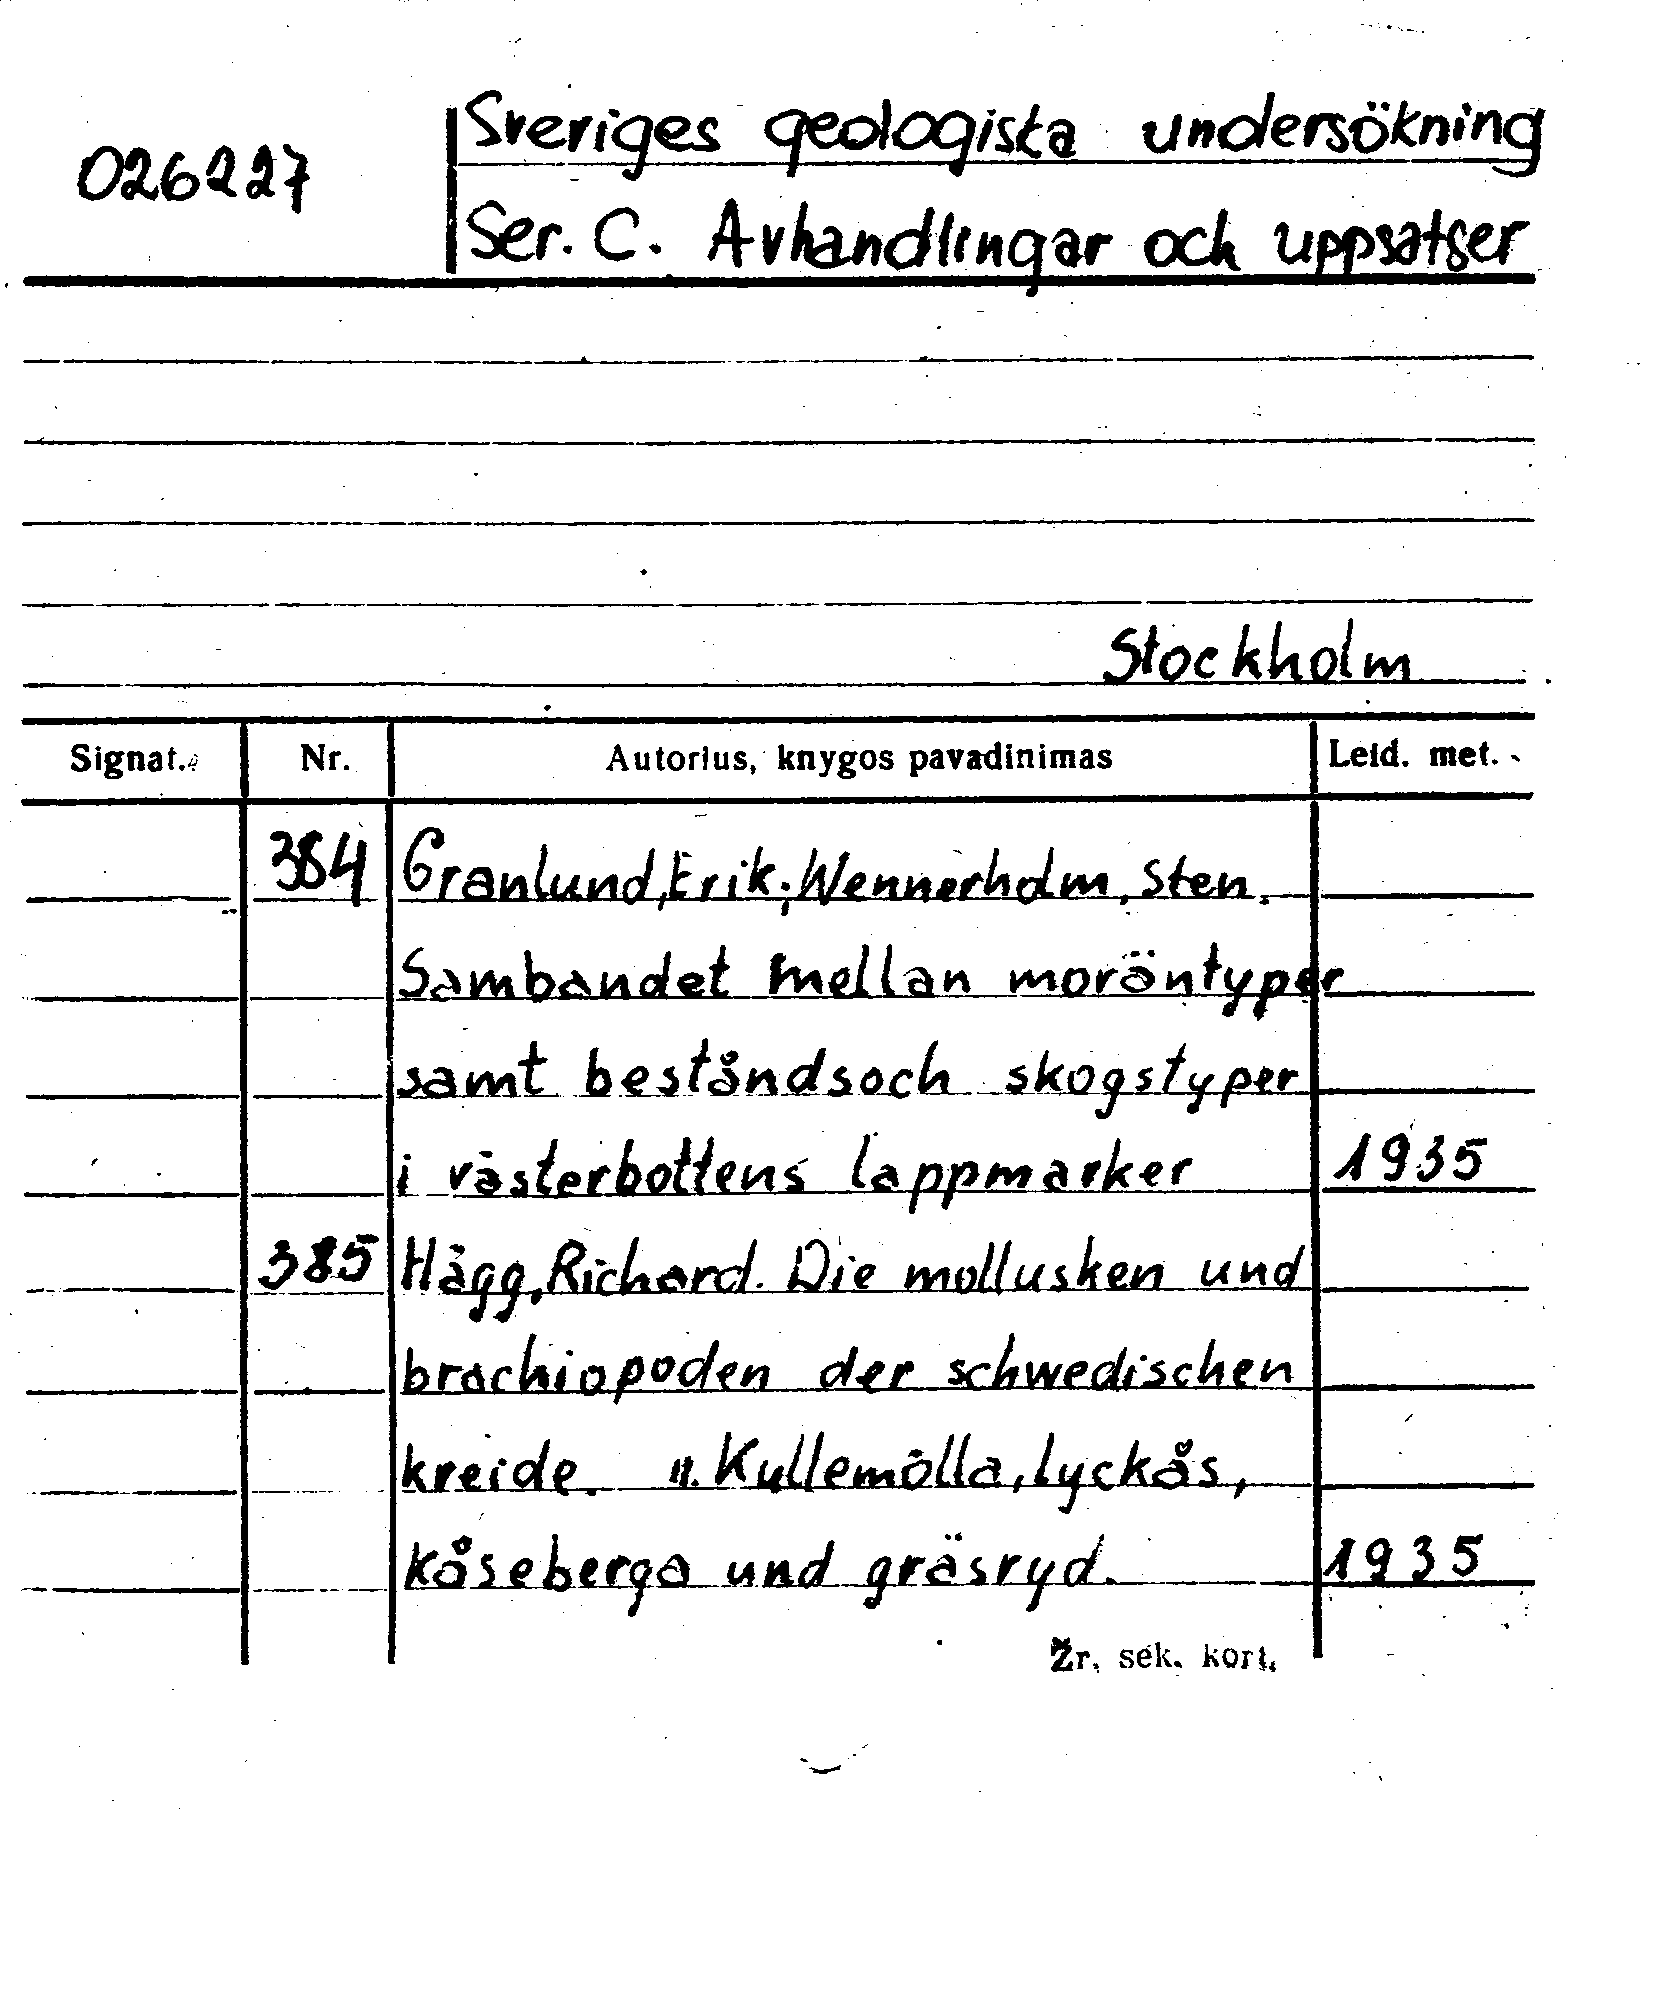 026227
Sveriges geologiska undersökning
Ser. C. Avhandlingar och uppsatser
Stockholm
Signat. Nr. Autorius, knygos pavadinimas Leid. met.
384 Granlund, Erik; Wennerholm, Sten.
Sambandet mellan moräntyper
samt beståndsoch skogstyper
i västerbottens lappmarker 1935
385 Hägg, Richard. Die mollusken und
brachiopoden der schwedischen
kreide. 11. Kullemölla, lyckås,
kåseberga und gräsryd. 1935
Žr. sek. kort.